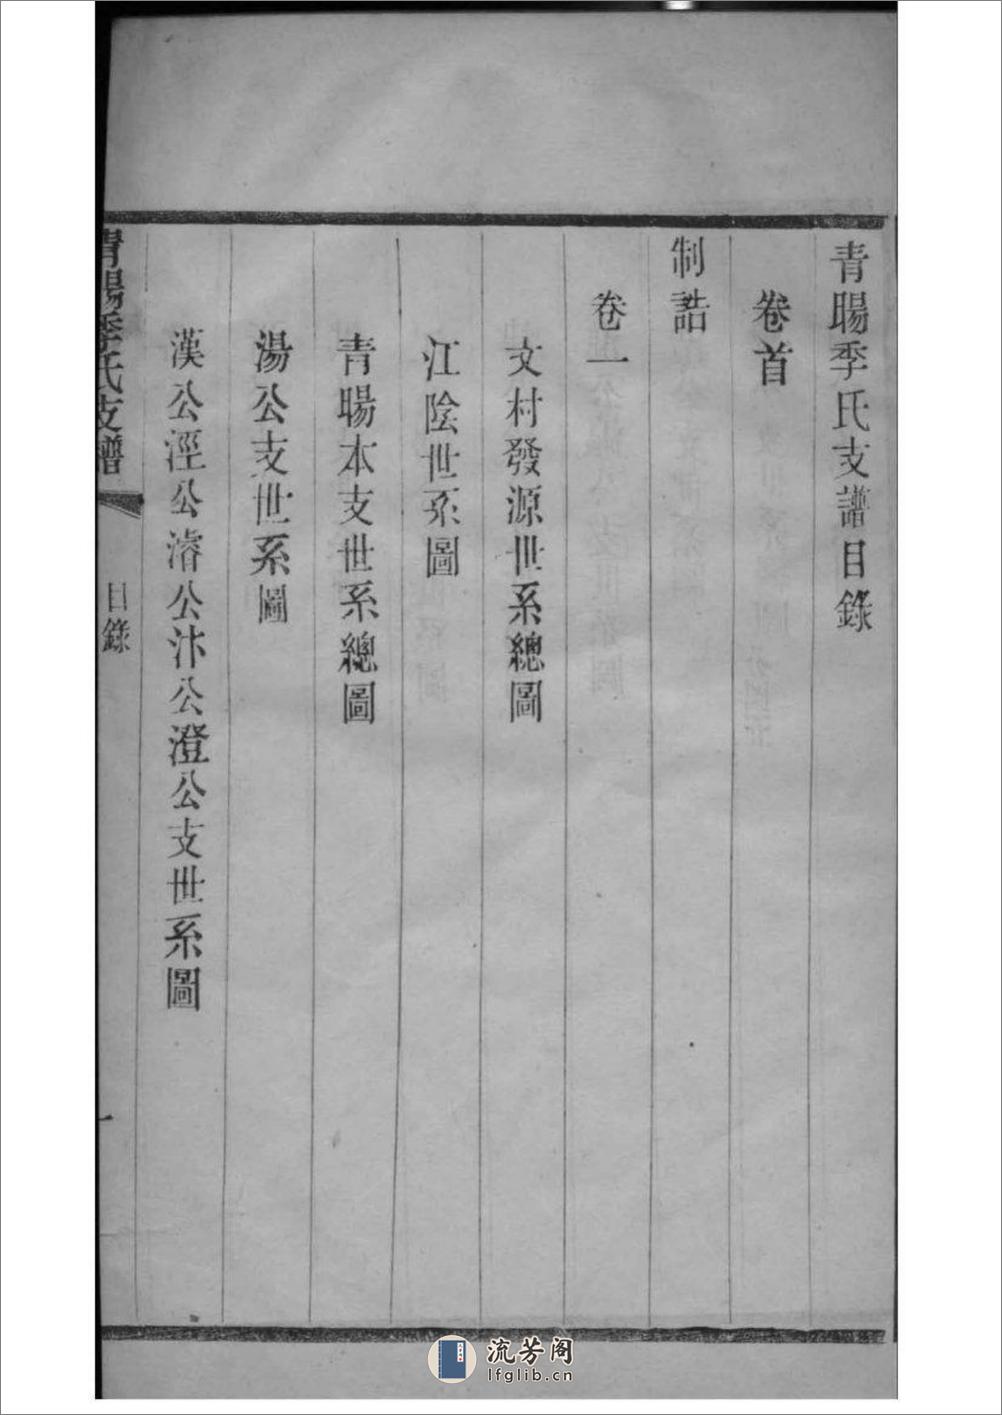 青暘季氏支譜目錄
卷首
制誥
卷一
文村發源世系總圖
江陰世系圖
青暘本支世系總圖
湯公支世系圖
漢公涇公濬公汴公澄公支世系圖
青暘季氏支譜
目錄
一
流芳阁
lfglib.cn